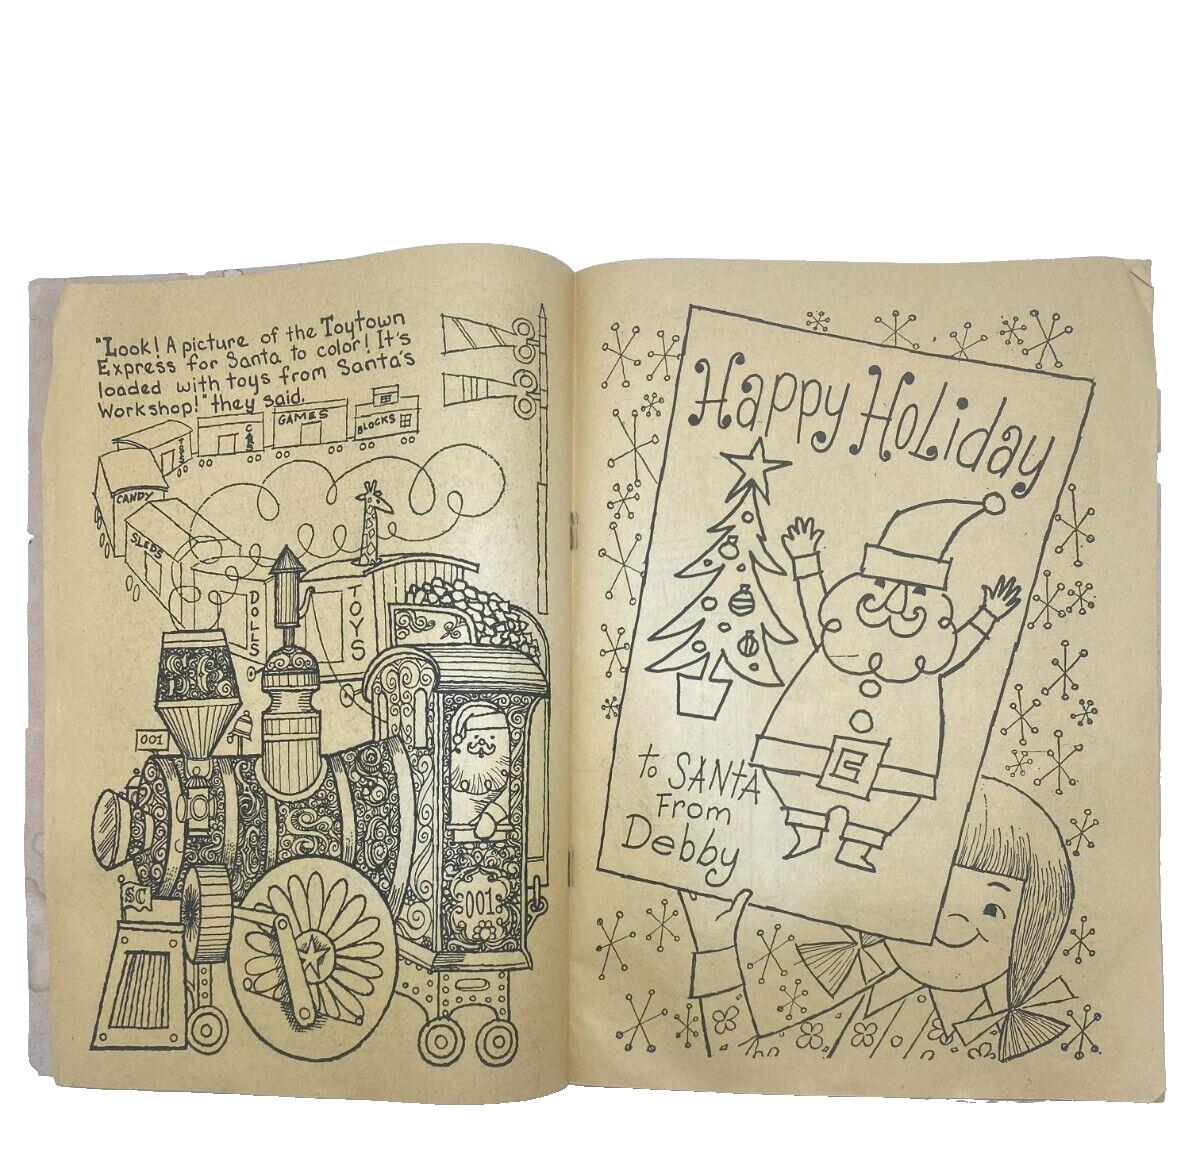 "Look! A picture of the Toytown
Express for Santa to color! It's
loaded with toys from Santa's
Workshop!" they said.
GAMES
BLOCKS
CANDY
SLEDS
DOLLS
TOYS
001
SC
001
Happy Holiday
to SANTA
From
Debby